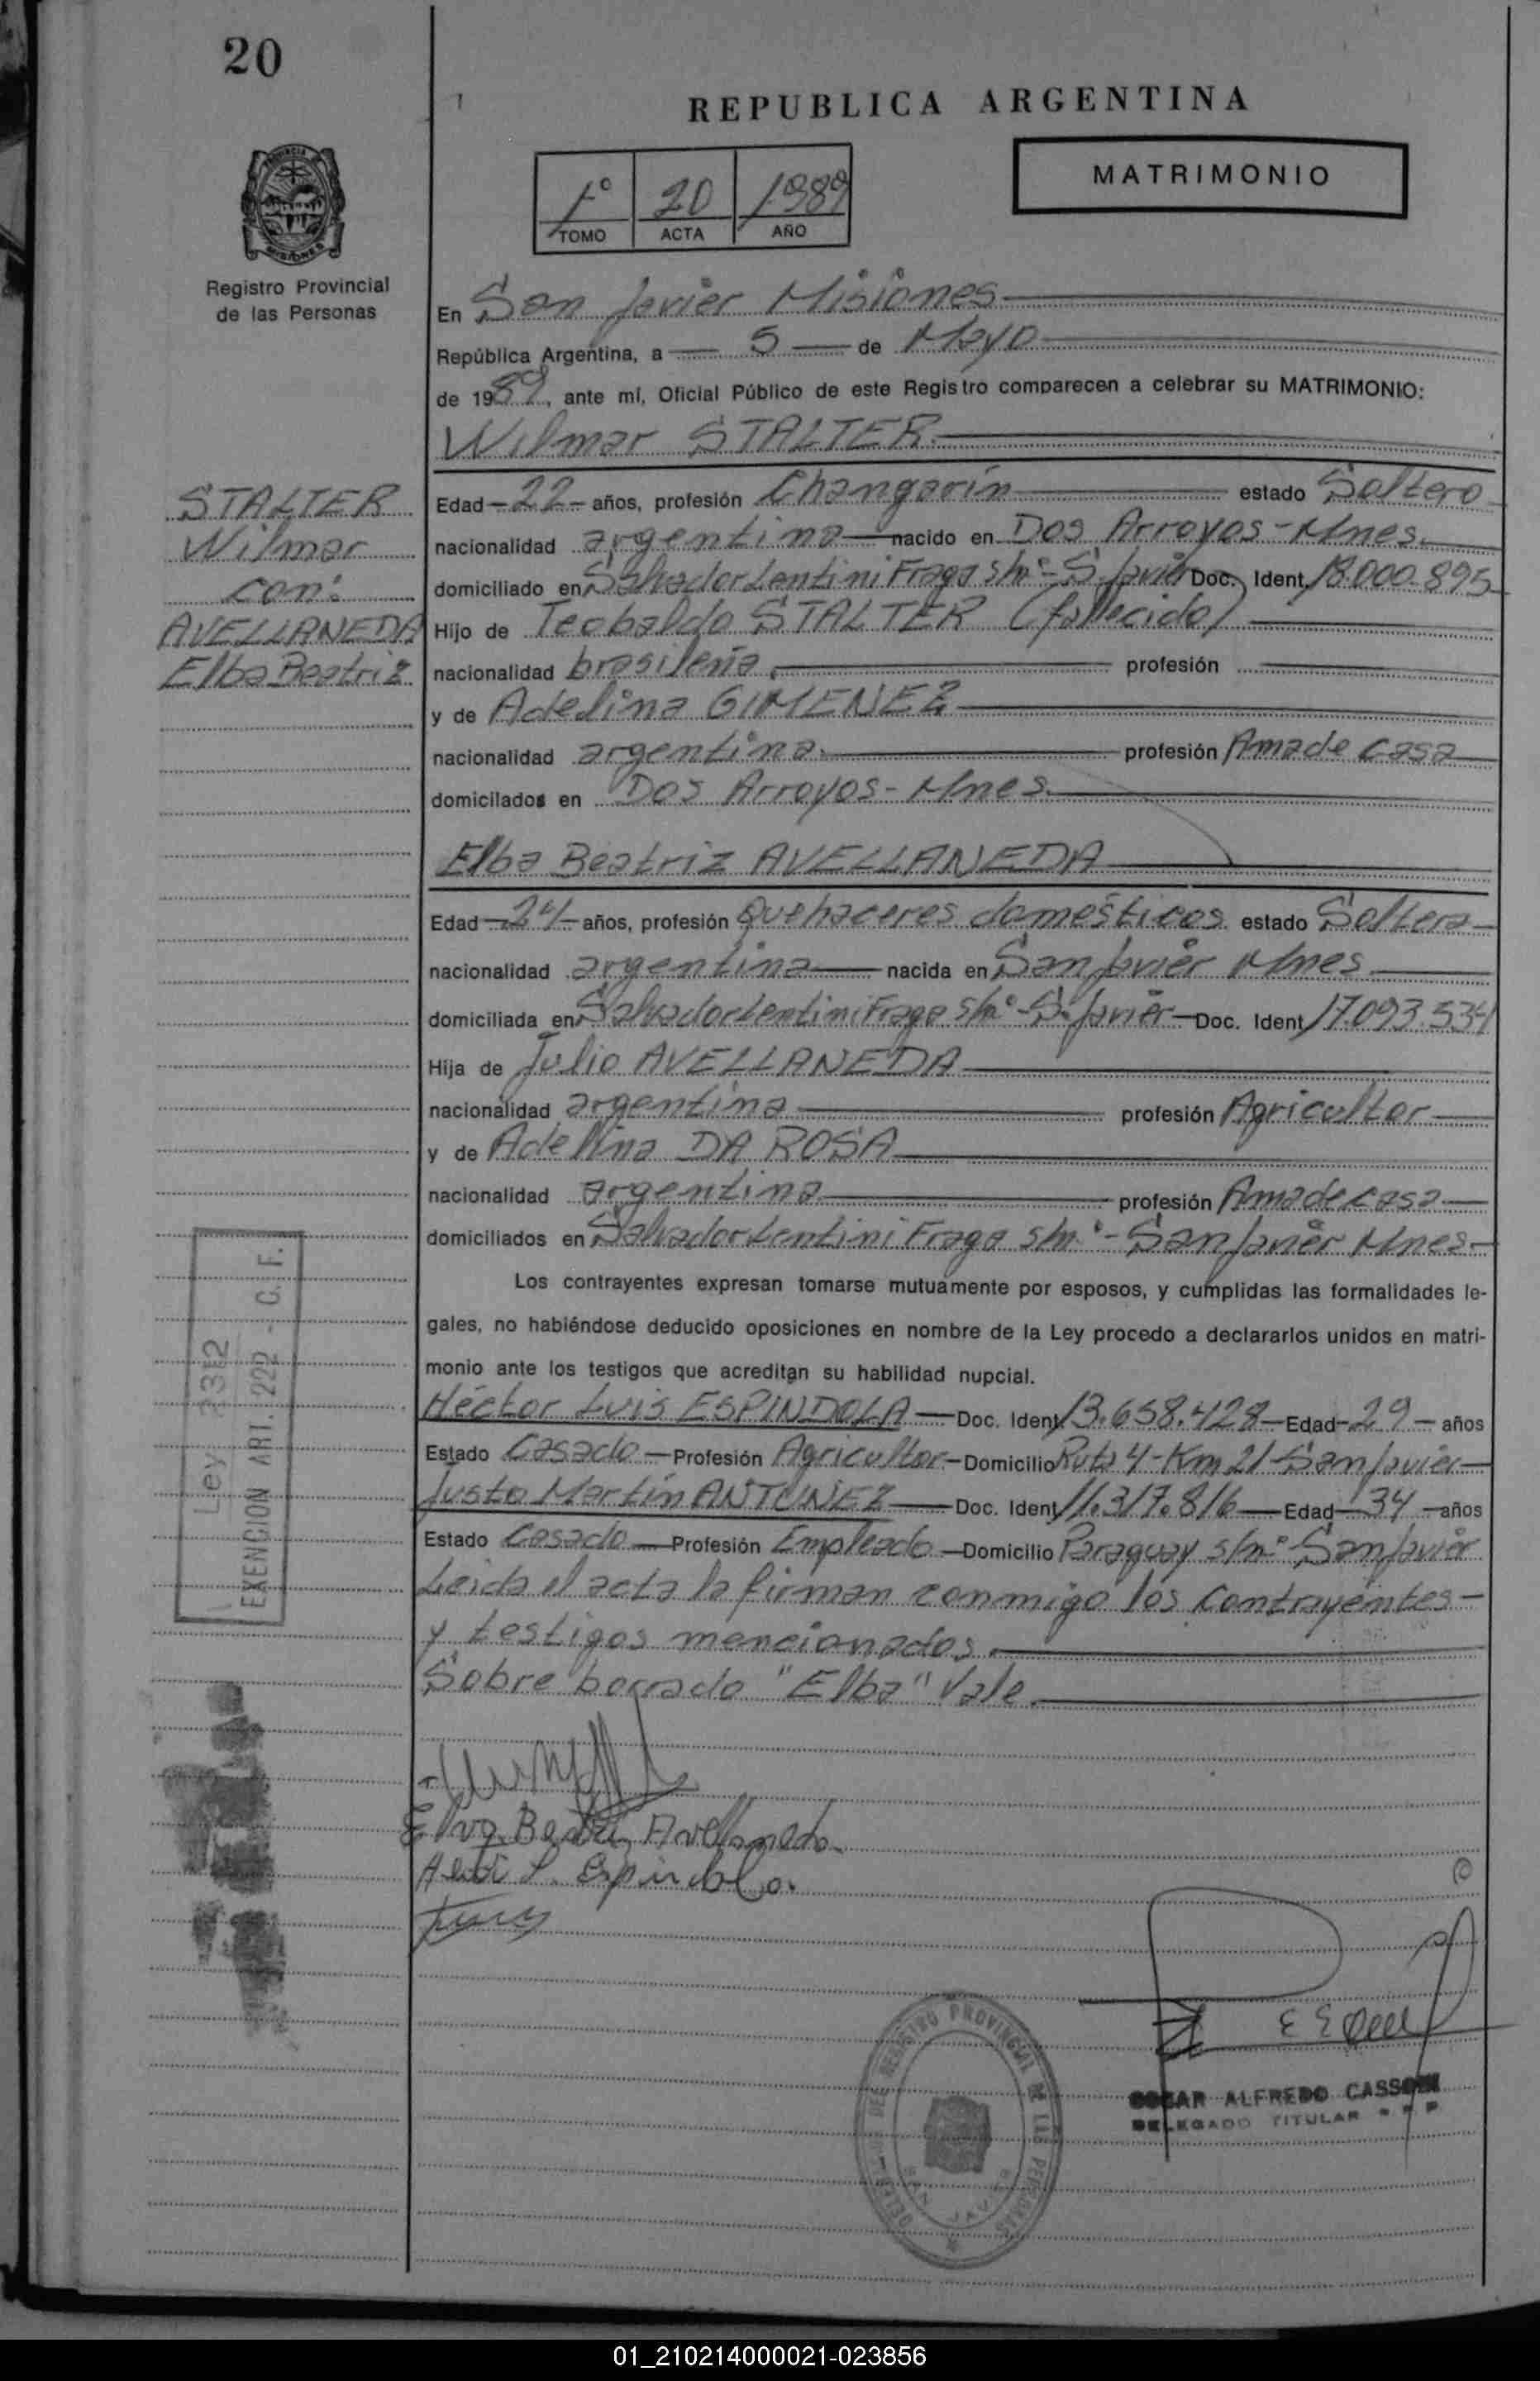 20
REPUBLICA ARGENTINA
MATRIMONIO
1º 20 1989
TOMO ACTA AÑO
PROVINCIA
MISIONES
Registro Provincial
de las Personas
En San Javier Misiones
República Argentina, a 5 de Mayo
de 1989, ante mí, Oficial Público de este Registro comparecen a celebrar su MATRIMONIO:
Wilmar STALTER.
STALTER
Wilmar
con:
AVELLANEDA
Elba Beatriz
Edad 22 años, profesión Changarín estado Soltero
nacionalidad argentina nacido en Dos Arroyos - Mnes.
domiciliado en Salvador Lentini Fraga s/nº - S. Javier Doc. Ident. 18.000.895
Hijo de Teobaldo STALTER (fallecido)
nacionalidad brasileña. profesión
y de Adelina GIMENEZ
nacionalidad argentina. profesión Ama de casa
domicilados en Dos Arroyos - Mnes.
Elba Beatriz AVELLANEDA
Edad 24 años, profesión Quehaceres domésticos estado Soltera
nacionalidad argentina nacida en San Javier Mnes
domiciliada en Salvador Lentini Fraga s/nº - S. Javier Doc. Ident. 17.093.534
Hija de Julio AVELLANEDA
nacionalidad argentina profesión Agricultor
y de Adelina DA ROSA
nacionalidad argentina profesión Ama de casa
domiciliados en Salvador Lentini Fraga s/nº - San Javier Mnes.
Los contrayentes expresan tomarse mutuamente por esposos, y cumplidas las formalidades le-
gales, no habiéndose deducido oposiciones en nombre de la Ley procedo a declararlos unidos en matri-
monio ante los testigos que acreditan su habilidad nupcial.
Héctor Luis ESPINDOLA Doc. Ident. 13.658.428 Edad 29 años
Estado Casado Profesión Agricultor Domicilio Ruta 4 - Km 21 San Javier
Justo Martín ANTUNEZ Doc. Ident. 11.317.816 Edad 34 años
Estado Casado Profesión Empleado Domicilio Paraguay s/nº San Javier
Leida el acta la firman conmigo los contrayentes
y testigos mencionados.
Sobre borrado "Elba" Vale.
Ley 2312
EXENCION ART. 222 - C. F.
Elva Beatriz Avellaneda
Espindola.
ALFREDO
DELEGADO TITULAR
REGISTRO PROVINCIAL DE LAS PERSONAS
SAN JAVIER
01_210214000021-023856